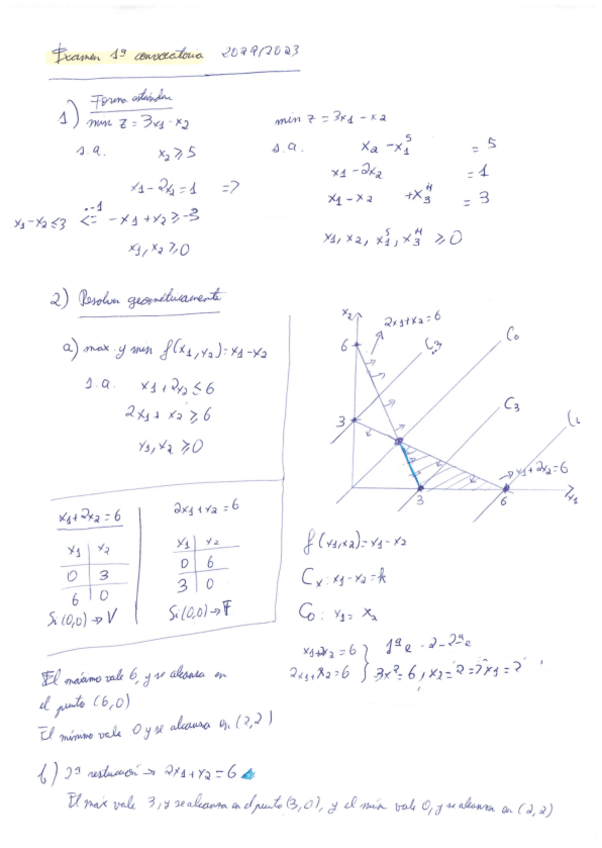 Examen 1ª convocatoria 2022/2023
1) Forma estándar
min z = 3x1 - x2
s.a. x2 ≥ 5
x1 - 2x2 = 1 =>
x1 - x2 ≤ 3 <=·-1 - x1 + x2 ≥ -3
x1, x2 ≥ 0
min z = 3x1 - x2
s.a. x2 - x1^S = 5
x1 - 2x2 = 1
x1 - x2 + x3^H = 3
x1, x2, x1^S, x3^H ≥ 0
2) Resolver geométricamente
a) max y min f(x1, x2) = x1 - x2
s.a. x1 + 2x2 ≤ 6
2x1 + x2 ≥ 6
x1, x2 ≥ 0
x1 + 2x2 = 6
x1 x2
0 3
6 0
Si (0,0) → V
2x1 + x2 = 6
x1 x2
0 6
3 0
Si (0,0) → F
x2
2x1 + x2 = 6
6
C-3
C0
C3
3
x1 + 2x2 = 6
3
6
x1
f(x1, x2) = x1 - x2
Ck: x1 - x2 = k
C0: x1 = x2
x1 + 2x2 = 6
2x1 + x2 = 6
3x2 = 6, x2 = 2 => x1 = 2
El máximo vale 6, y se alcanza en
el punto (6,0)
El mínimo vale 0 y se alcanza en (2,2)
b) 2ª restricción → 2x1 + x2 = 6
El max vale 3, y se alcanza en el punto (3,0), y el mín vale 0, y se alcanza en (2,2)